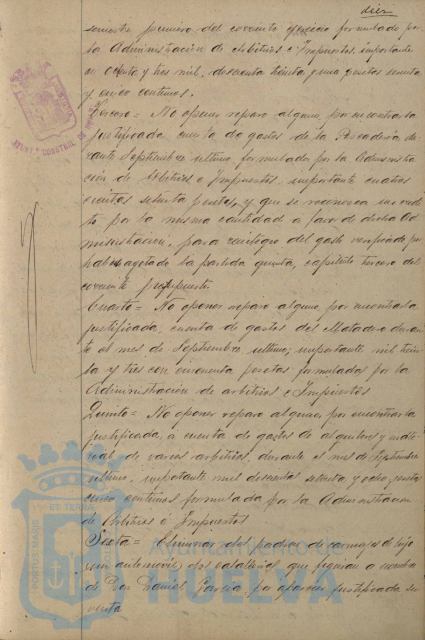 diez
semestre primero del corriente ejercicio formulado por
la Administración de Arbitrios e Impuestos, importante
tres mil, doscientas treinta y una pesetas setenta
y cinco centimos.
Tercero = No oponer reparo alguno, por encontrarla
justificada, cuenta de gastos de la Pescadería du-
rante Septiembre ultimo, formulada por la Administra-
ción de Arbitrios e Impuestos, importante cuatro
cientas setenta pesetas, y que se reconozca un credi-
to por la misma cantidad a favor de dicha Ad
ministracion, para reintegro del gasto verificado por
haberse agotado la partida quinta, capitulo tercero del
corriente presupuesto.
Cuarto = No oponer reparo alguno, por encontrarla
justificada, cuenta de gastos del Matadero duran-
te el mes de Septiembre ultimo, importante, mil trein
ta y tres con cincuenta pesetas formulada por la
Administración de arbitrios e Impuestos
Quinto = No oponer reparo alguno, por encontrarla
justificada, a cuenta de gastos de alquileres y mate
rial de varios arbitrios, durante el mes de Septiembre
ultimo, importante mil doscientas setenta y ocho, pesetas
cinco centimos formulada por la Administracion
de Arbitrios e Impuestos
Sexta = Eliminar del padron de carruajes de lujo
un automovil, que figuran a nombre
de Don Daniel Garcia, por aparecer justificada su
venta
AYUNTº CONSTNAL DE
Ayuntamiento de
HUELVA
PORTUS MARIS
ET TERRÆ